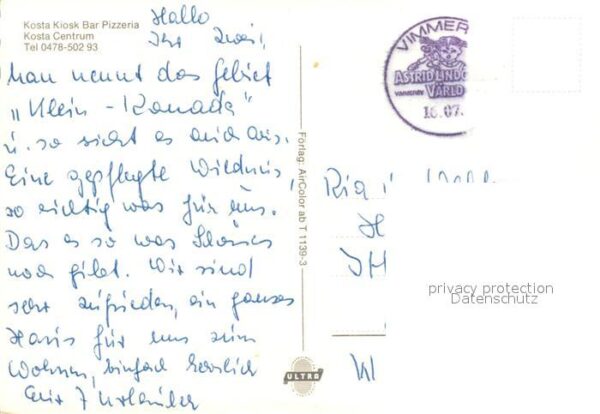 Kosta Kiosk Bar Pizzeria
Kosta Centrum
Tel 0478-502 93
Hallo
Ihr Zwei!
Man nennt das Gebiet
„Klein-Kanada"
u. so sieht es auch aus.
Eine gepflegte Wildnis,
so richtig was für uns.
Das es so was Schönes
noch gibt. Wir sind
sehr zufrieden, ein ganzes
Haus für uns zum
Wohnen, einfach herrlich
Eure 7 Urlauber
Förlag: AirColor ab T 1139-3
ULTRA
VIMMER
ASTRID LINDG
VÄRLD
16.07.
Ria
privacy protection
Datenschutz